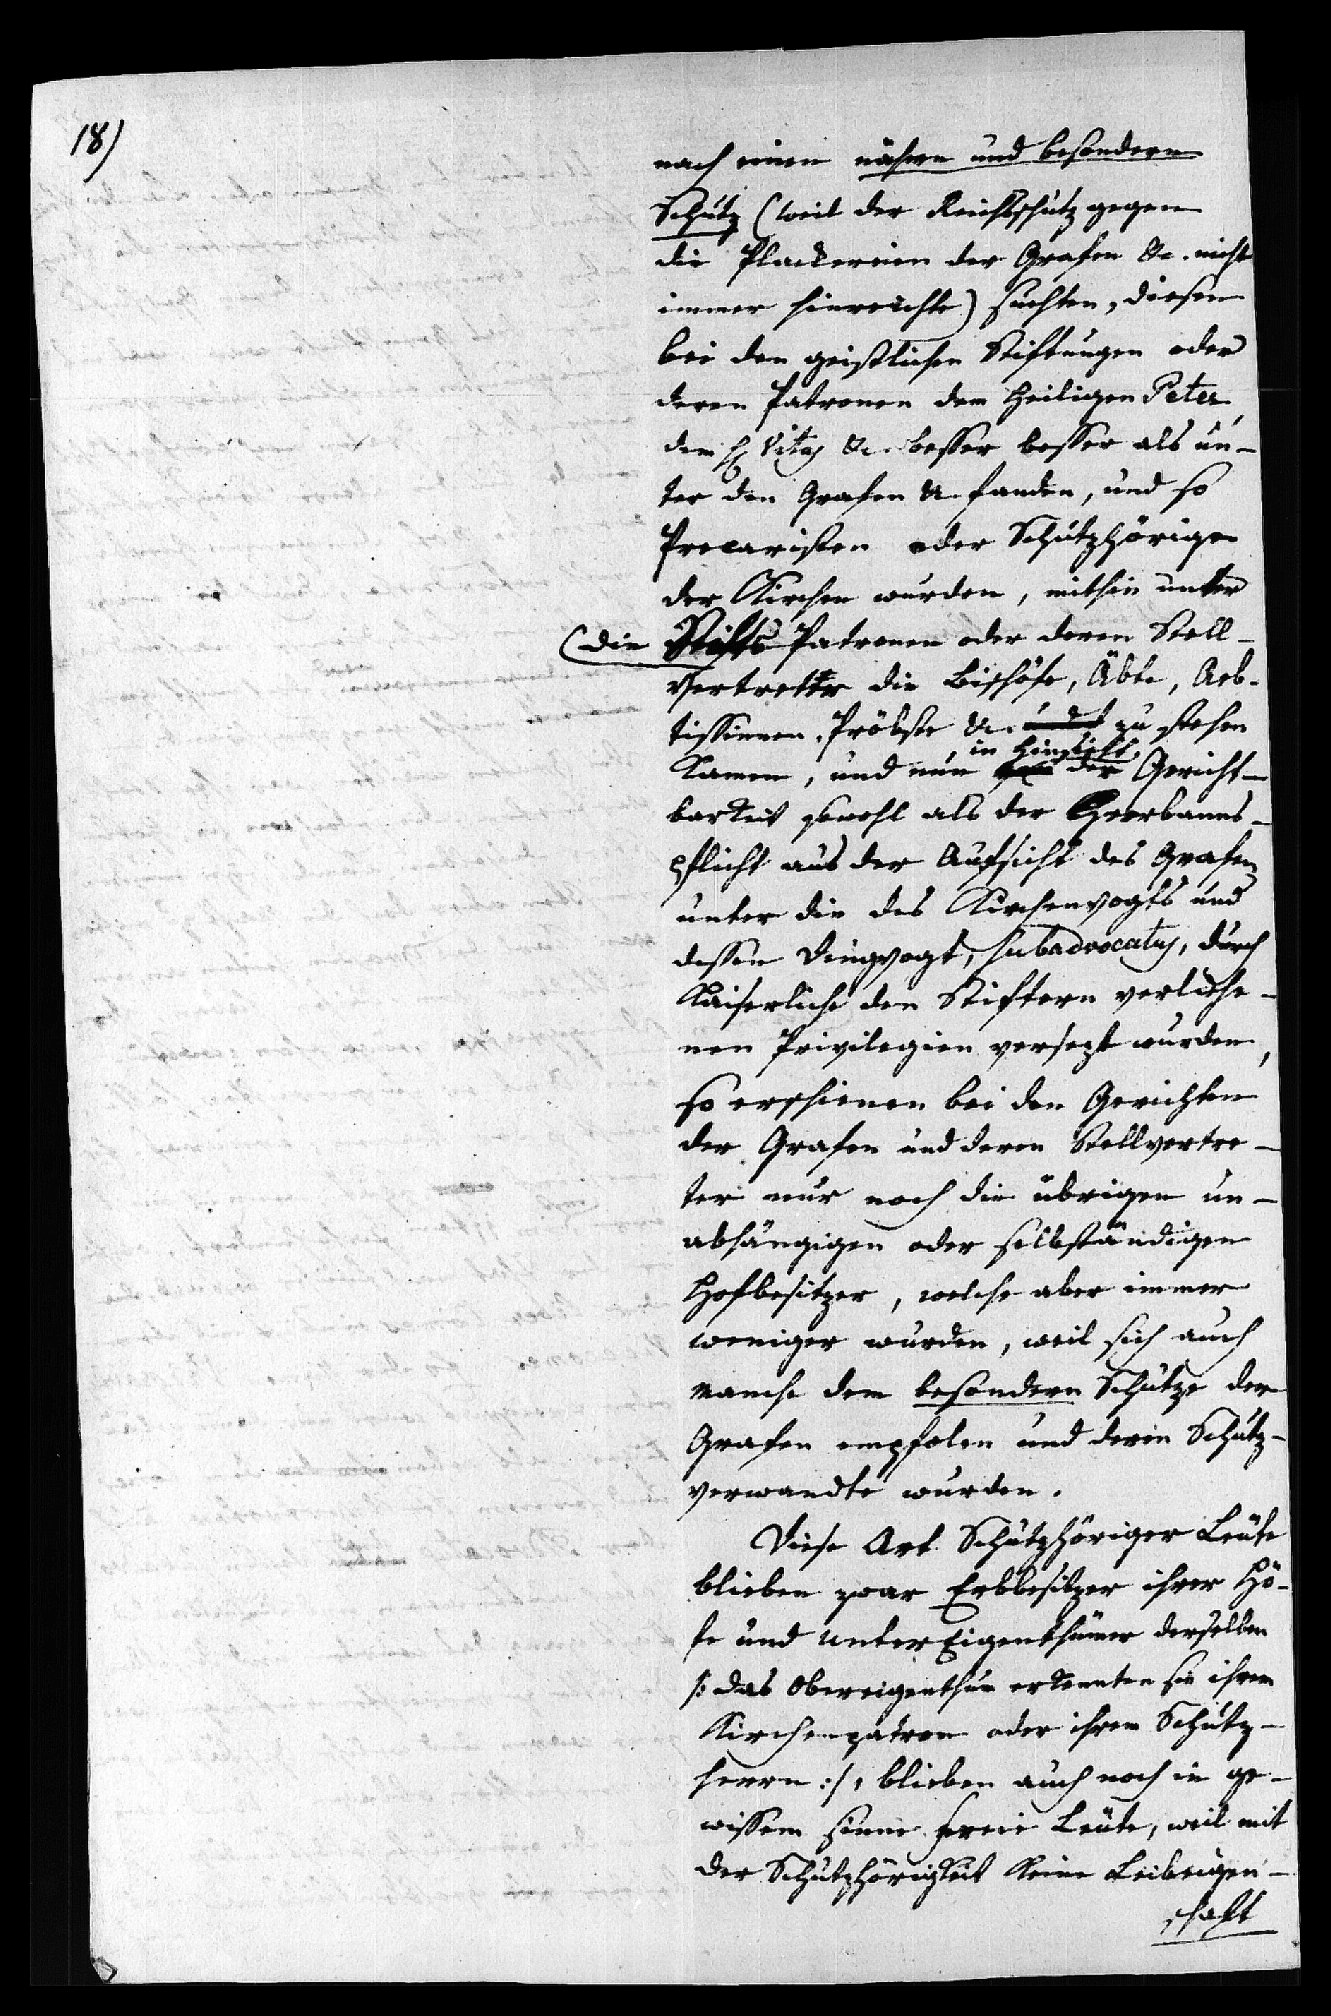 18)
nach einen nähern und besondern
Schutz (weil der Reichsschutz gegen
die Plackereien der Grafen &c. nicht
immer hinreichte) suchten, diesen
bei den geistlichen Stiftungen oder
deren Patronen dem heiligen Peter,
dem h. Vitus &c. besser besser als un-
ter den Grafen &c. fanden, und so
Precaristen oder Schutzhörige
der Kirchen wurden, mithin unter
(die Stifts Patronen oder deren Stell-
vertretter die Bischöfe, Äbte, Aeb-
tissinnen, Pröbste &c. zu stehen
kamen, und nun in Hinsicht der Gericht-
barkeit sowohl als der Heerbanns-
pflicht aus der Aufsicht des Grafen
unter die des Kirchenvogts und
dessen Dingvogt, subadvocatus, durch
Kaiserliche den Stiftern verliehe-
nen Privilegien versezt wurden,
so erschienen bei den Gerichten
der Grafen und deren Stellvertre-
ter nur noch die übrigen un-
abhängigen oder selbständigen
Hofbesitzer, welche aber immer
weniger wurden, weil sich auch
manche dem besondern Schutze der
Grafen empfolen und deren Schutz-
verwandte wurden.
Diese Art Schutzhöriger Leute
blieben zwar Erbbesitzer ihrer Hö-
fe und unterEigenthümer derselben
/: das Obereigenthum erkennten sie ihrem
Kirchenpatron oder ihrem Schutz-
herrn :/, blieben auch noch in ge-
wissem sinne freie Leute, weil mit
der Schutzhörigkeit keine Leibeigen-
schaft